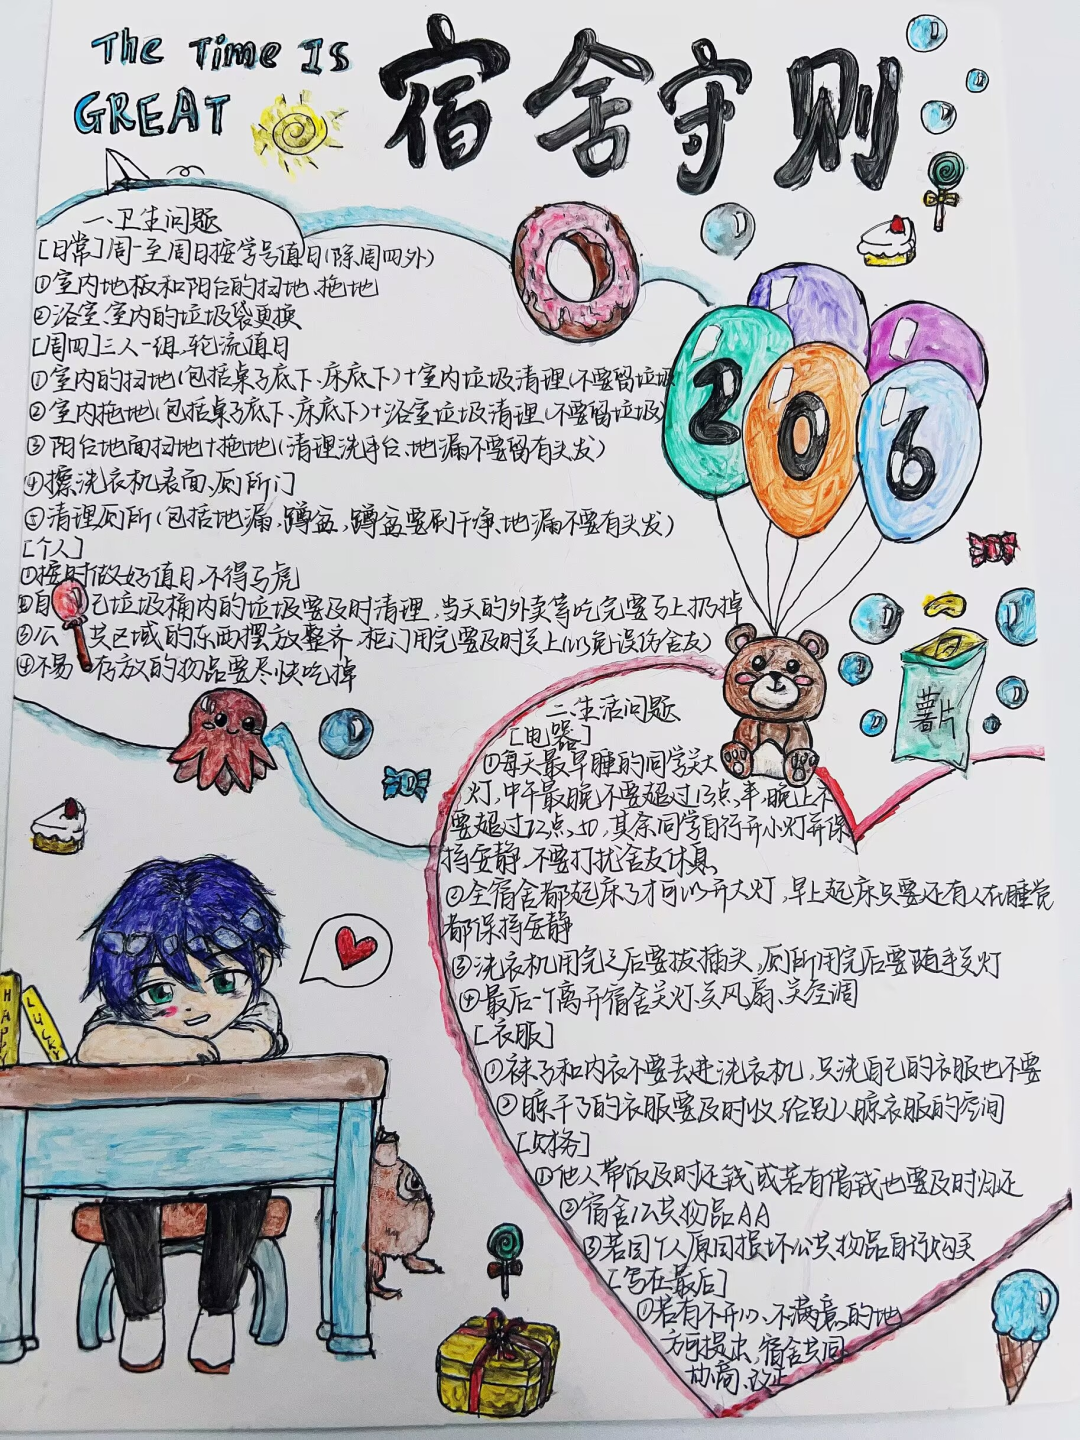 The Time Is
GREAT
宿舍守则
一、卫生问题
[日常]周一至周日按学号值日(除周四外)
①室内地板和阳台的扫地、拖地
②浴室、室内的垃圾袋更换
[周四]三人一组,轮流值日
①室内的扫地(包括桌子底下、床底下)+室内垃圾清理(不要留垃圾
②室内拖地(包括桌子底下、床底下)+浴室垃圾清理(不要留垃圾)
③阳台地面扫地+拖地(清理洗手台、地漏不要留有头发)
④擦洗衣机表面、厕所门
⑤清理厕所(包括地漏,蹲盆,蹲盆要刷干净、地漏不要有头发)
[个人]
①按时做好值日,不得马虎
②自己垃圾桶内的垃圾要及时清理,当天的外卖等吃完要马上扔掉
③公共区域的东西摆放整齐,柜门用完要及时关上(以免误伤舍友)
④不易存放的物品要尽快吃掉
206
薯片
二、生活问题
[电器]
①每天最早睡的同学关大
灯,中午最晚不要超过13点半,晚上不
要超过12点,其余同学自行开小灯并保
持安静,不要打扰舍友休息
②全宿舍都起床了才可以开大灯,早上起床只要还有人在睡觉
都保持安静
③洗衣机用完之后要拔插头,厕所用完后要随手关灯
④最后一个离开宿舍关灯、关风扇、关空调
[衣服]
①袜子和内衣不要丢进洗衣机,只洗自己的衣服也不要
②晾干了的衣服要及时收,给别人晾衣服的空间
[财务]
①他人带饭及时还钱或若有借钱也要及时归还
②宿舍公共物品AA
③若因个人原因损坏公共物品自行购买
[写在最后]
①若有不开心、不满意的地
方可提出,宿舍共同
协商、改正
HAPPY
LUCKY